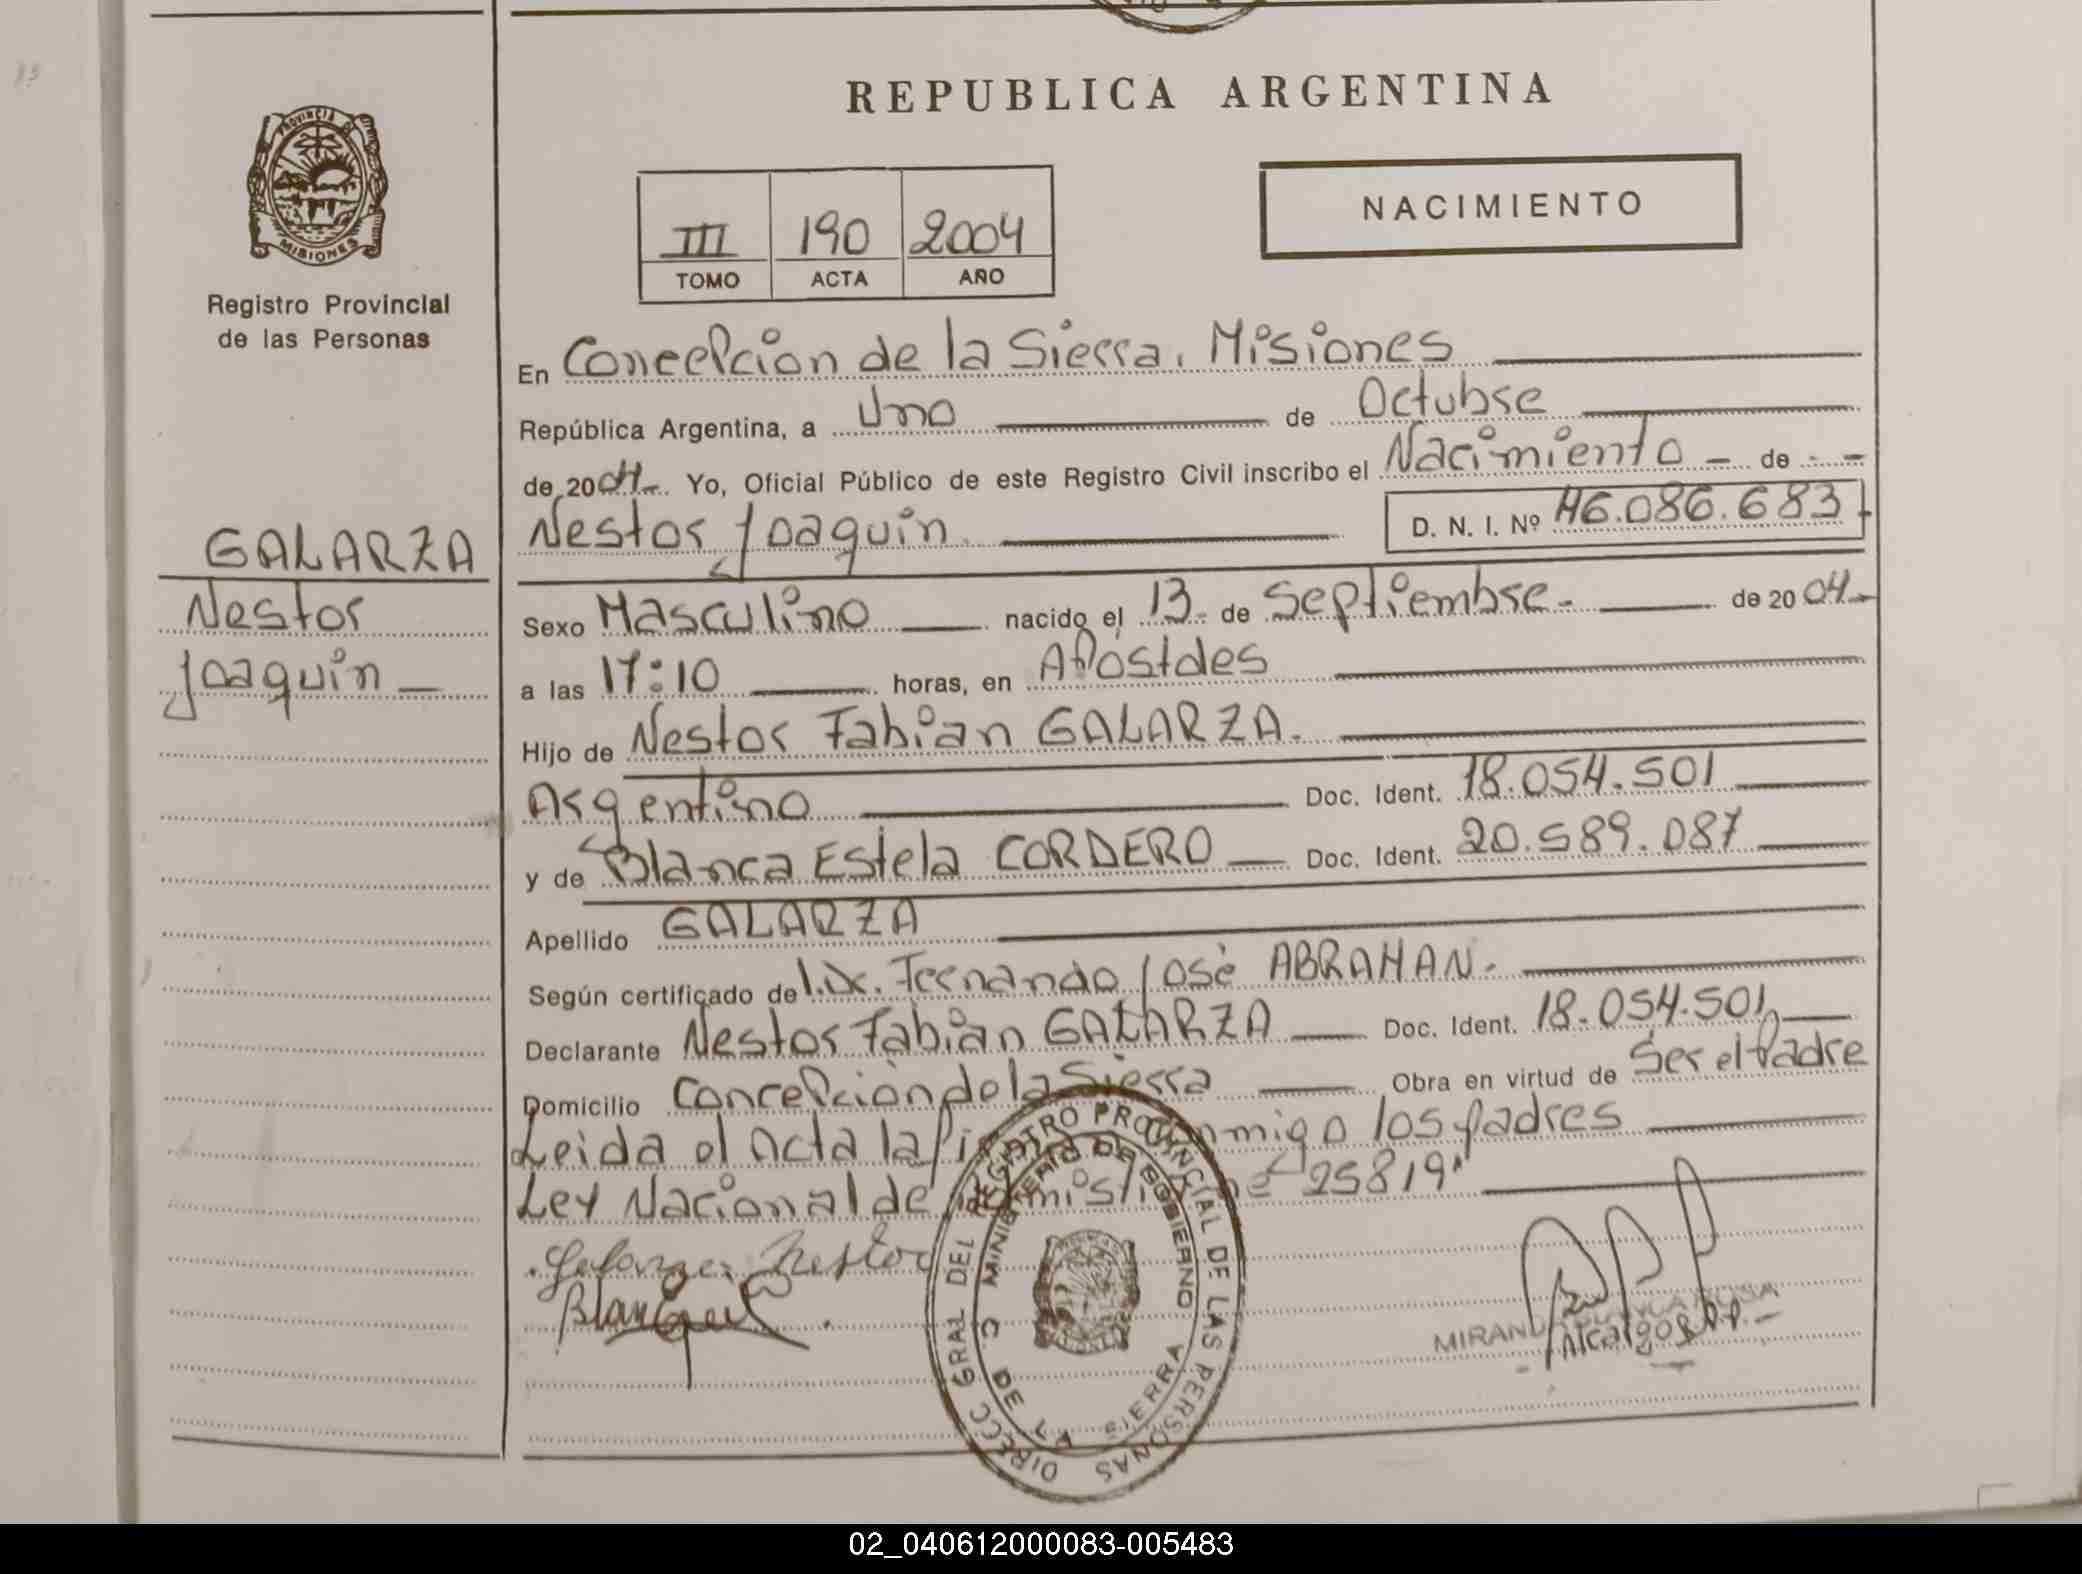 REPUBLICA ARGENTINA
PROVINCIA DE
MISIONES
Registro Provincial
de las Personas
III 190 2004
TOMO ACTA AÑO
NACIMIENTO
En Concepcion de la Sierra. Misiones
República Argentina, a Uno de Octubre
de 2004 Yo, Oficial Público de este Registro Civil inscribo el Nacimiento - de - -
Nestor Joaquin. D. N. I. Nº 46.086.683
GALARZA
Nestor
Joaquin
Sexo Masculino nacido el 13 - de Septiembre - de 2004
a las 17:10 horas, en Apóstoles
Hijo de Nestor Fabian GALARZA.
Argentino Doc. Ident. 18.054.501
y de Blanca Estela CORDERO Doc. Ident. 20.589.087
Apellido GALARZA
Según certificado de Dr. Fernando José ABRAHAN.
Declarante Nestor Fabian GALARZA Doc. Ident. 18.054.501
Domicilio Concepción de la Sierra Obra en virtud de Ser el Padre
Leida el Acta la conmigo los padres
Ley Nacional de 25819"
Galarza Nestor
DIRECC GRAL DEL REGISTRO PROVINCIAL DE LAS PERSONAS
MINISTERIO DE GOBIERNO
C DE LA SIERRA
MIRANDA
02_040612000083-005483